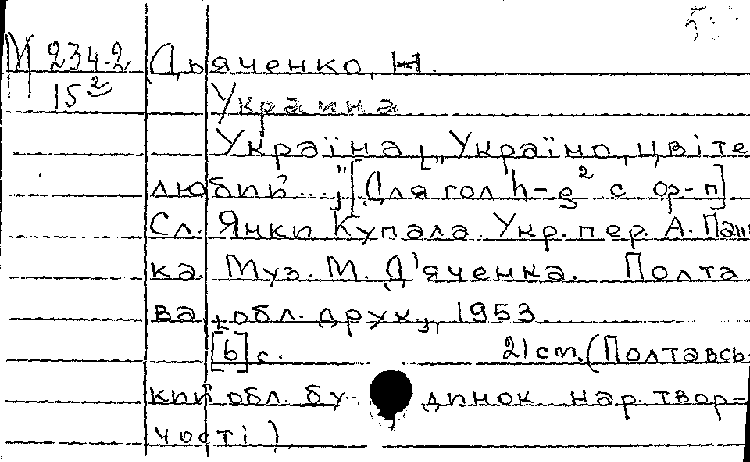 М 234-2 Дьяченко, Н.
15² Украина
Україна [„Україно, цвіте
любий...”] [Для гол h-g² с ф-п]
Сл. Янки Купала. Укр. пер. А. Пан
ка. Муз. М. Д'яченка. Полта
ва, обл. друк., 1953.
[6] с. 21 cm. (Полтавсь-
кий обл. бу- динок нар. твор-
чості)